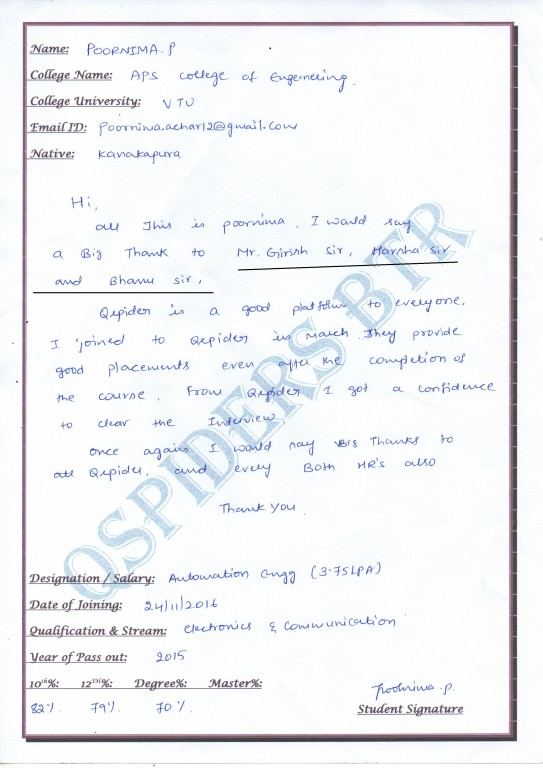 Name: POORNIMA.P
College Name: APS college of Engeneering.
College University: VTU
Email ID: poornima.achar12@gmail.com
Native: Kanakapura
Hi,
all This is poornima. I would say
a Big Thank to Mr. Girish Sir, Harsha Sir
and Bhanu Sir,
Qspider is a good platform to everyone.
I joined to Qspider in March. They provide
good placements even after the completion of
the course. From Qspider I got a confidence
to clear the Interview.
once again I would say Big Thanks to
all Qspider. and every Both HR's also
Thank you.
QSPIDERS BTR
Designation / Salary: Automation Engg (3.75LPA)
Date of Joining: 24/11/2016
Qualification & Stream: Electronics & Communication
Year of Pass out: 2015
10th%: 12TH%: Degree%: Master%:
82%. 79% 70%
poornima.p.
Student Signature